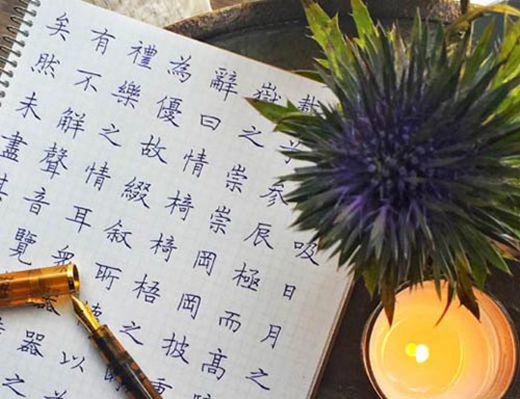 吸日月之
載兮參辰極而高
嶽之崇崇岡岡披重
辭曰情椅椅梧之所
為優故綴敘所以為
禮樂之情耳眾器器之
有不解聲音覽
矣然未盡其